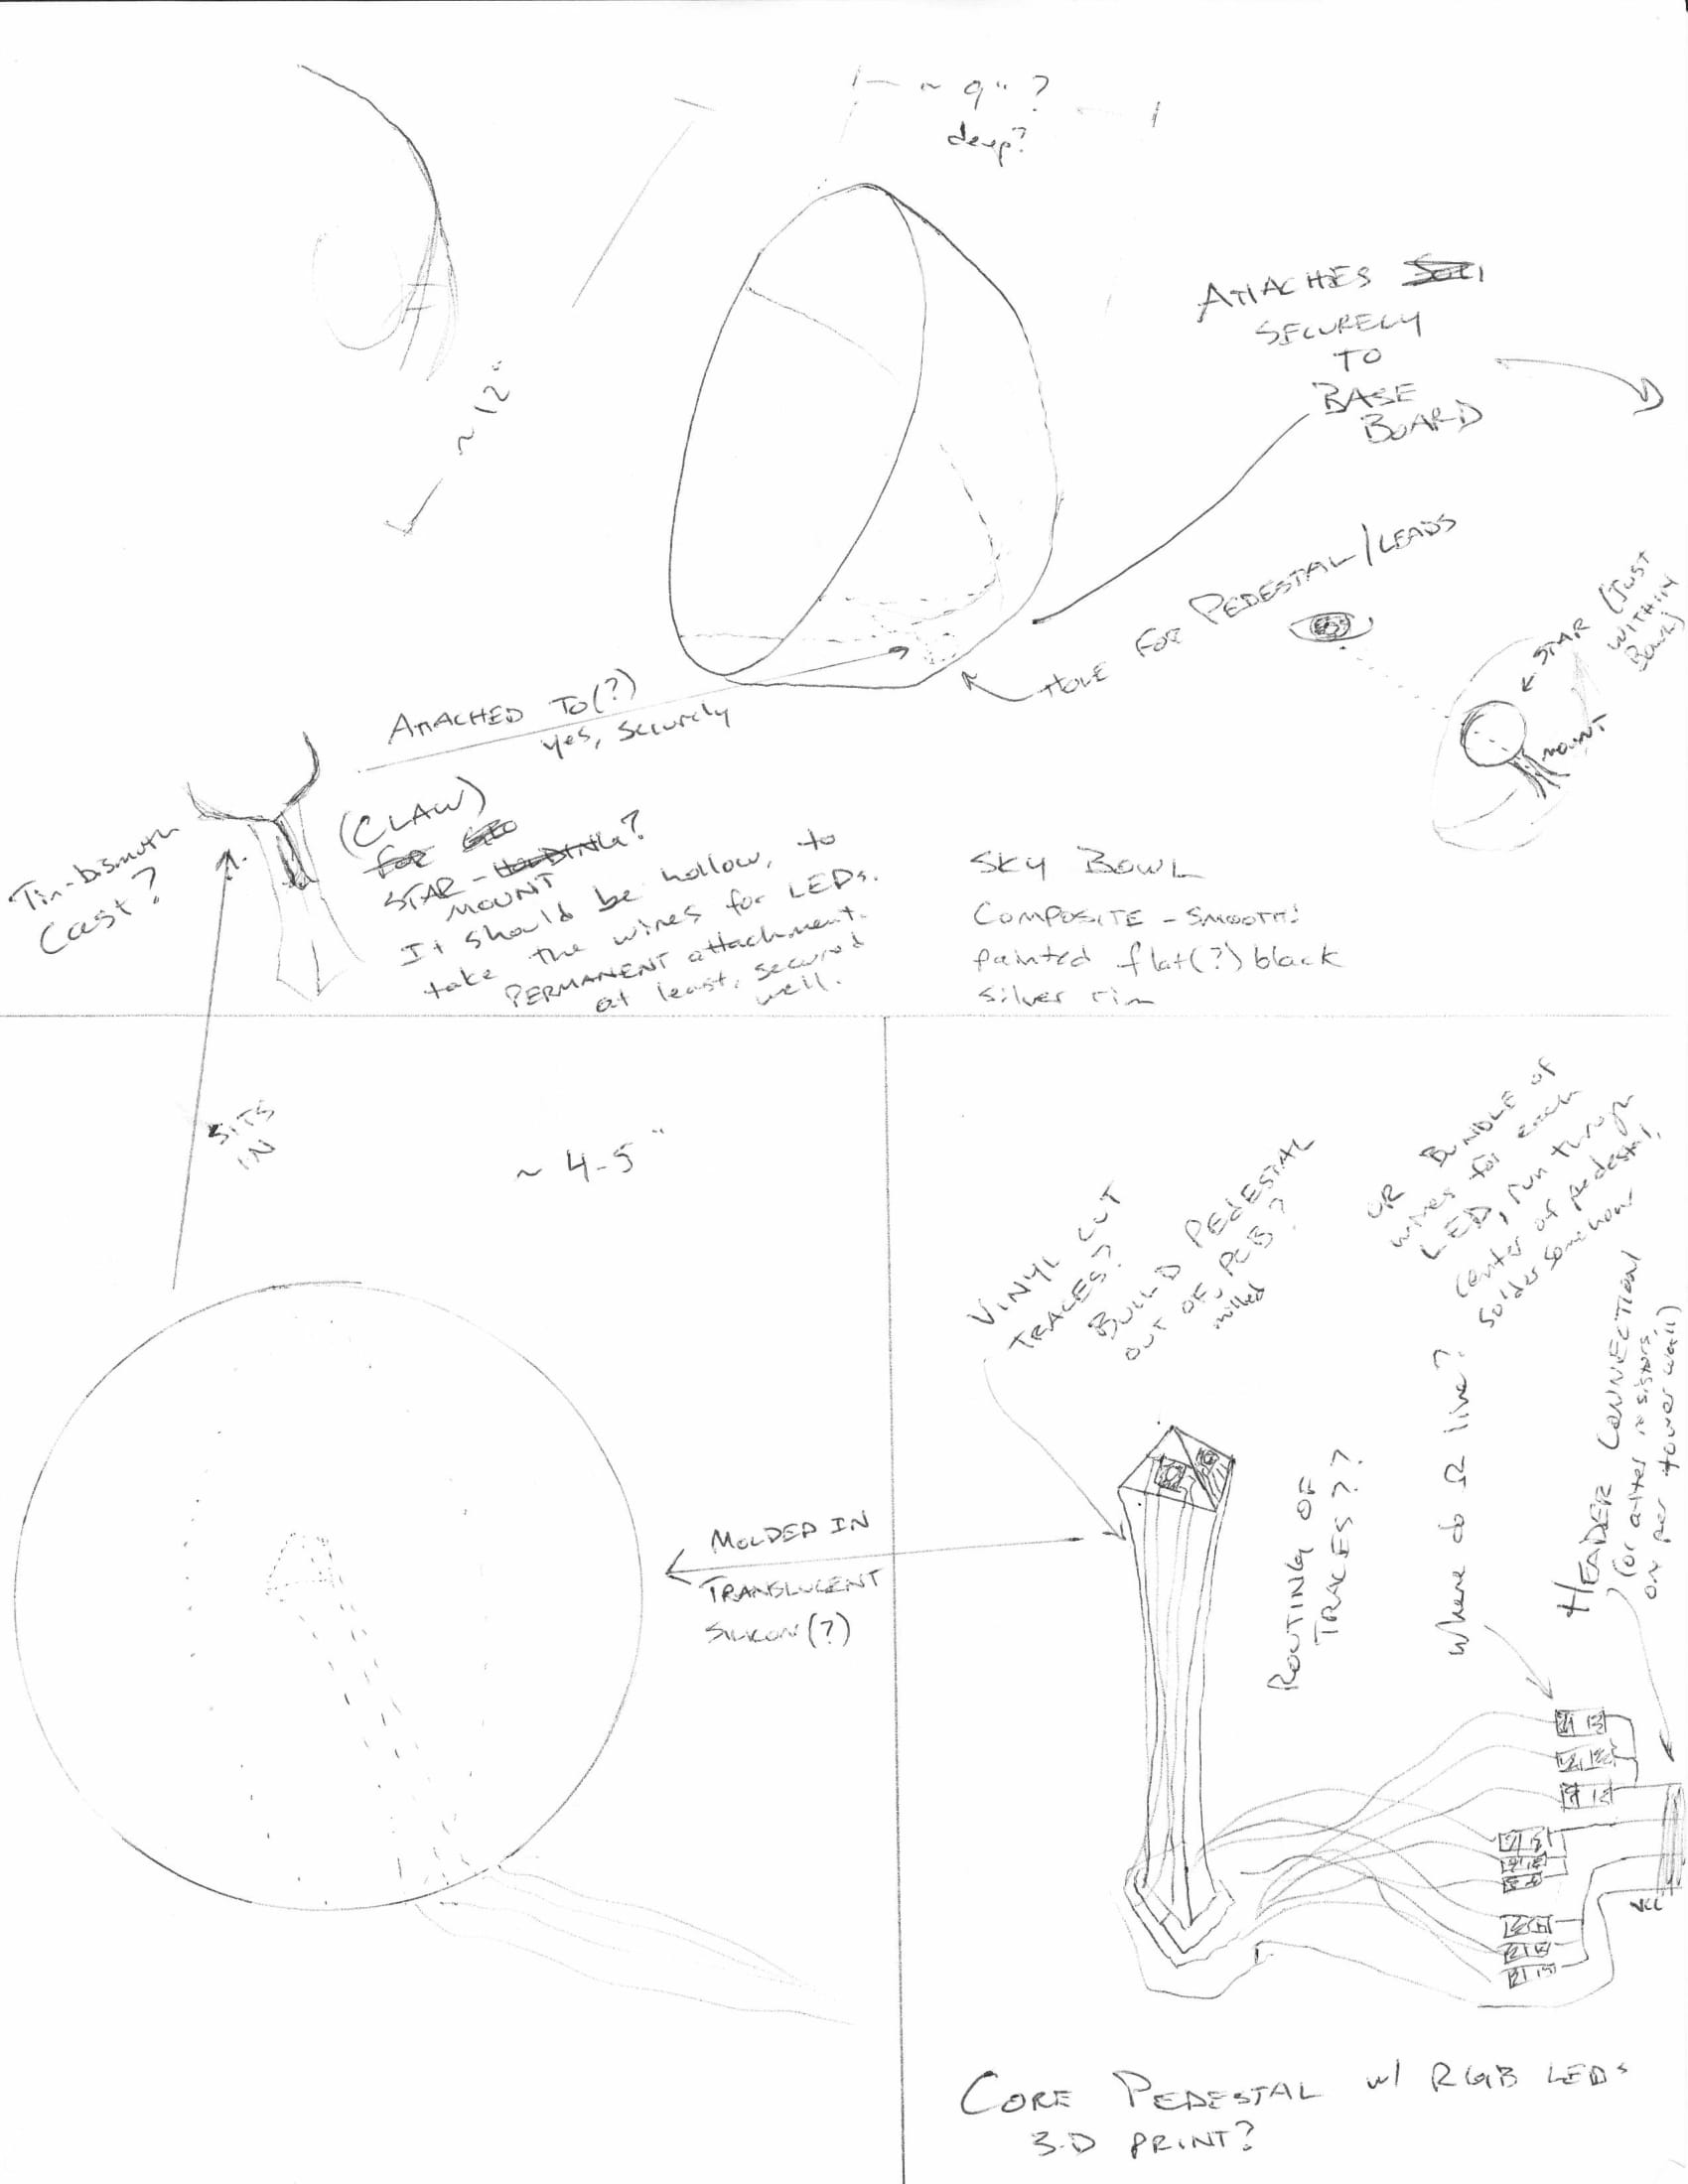 ~ 9" ?
deep?
~ 12"
ATTACHES
SECURELY
TO
BASE
BOARD
HOLE FOR PEDESTAL/LEADS
STAR (JUST
WITHIN
BOWL)
MOUNT
ATTACHED TO(?)
yes, securely
Tin-bismuth
Cast?
(CLAW)
FOR
STAR - HOLDING?
MOUNT
It should be hollow, to
take the wires for LEDs.
PERMANENT attachment.
at least, secured
well.
SKY BOWL
COMPOSITE - SMOOTH!
painted flat(?) black
silver rim
SITS
IN
~ 4-5"
MOLDED IN
TRANSLUCENT
SILICON(?)
VINYL CUT
TRACES?
BUILD PEDESTAL
OUT OF PCB?
milled
OR BUNDLE OF
wires for each
LED, run through
center of pedestal,
solder somehow
ROUTING OF
TRACES??
where do Ω live?
HEADER CONNECTION
(or after resistors,
on per tower wall)
VCC
CORE PEDESTAL w/ RGB LEDs
3-D PRINT?